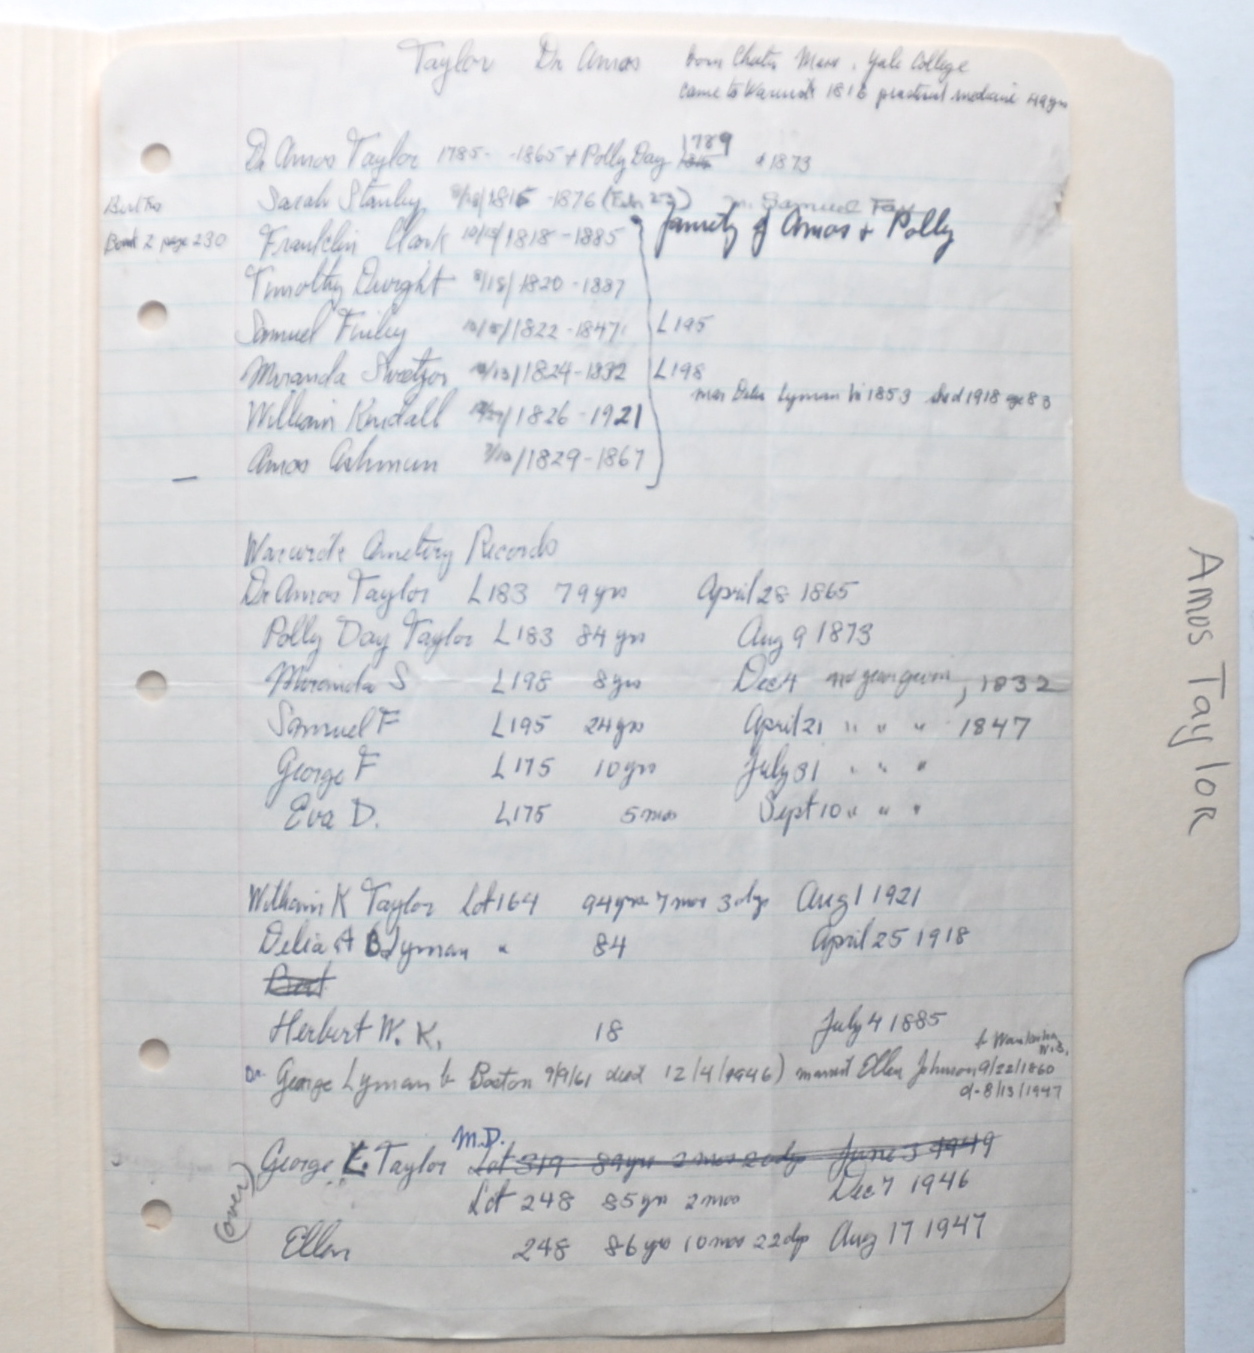 Taylor Dr Amos born Chester Mass, Yale College
came to Warwick 1816 practiced medicine 49 yrs
Dr Amos Taylor 1785- -1865 + Polly Day 1789 +1873
Sarah Stanley 1816 -1876 (Feb 23) m. Samuel Fay
Births
Book 2 page 230
Franklin Clark 1818-1885 family of Amos + Polly
Timothy Dwight 1820-1887
Samuel Finley 1822-1847 L195
Miranda Sweetzer 1824-1832 L198
mar Delia Lyman in 1853 died 1918 age 83
William Kendall 1826-1921
Amos Ashmun 1829-1867
Warwick Cemetery Records
Dr Amos Taylor L183 79 yrs April 28 1865
Polly Day Taylor L183 84 yrs Aug 9 1873
Miranda S L198 8 yrs Dec 4 no year given, 1832
Samuel F L195 24 yrs April 21 " " " 1847
George F L175 10 yrs July 31 " " "
Eva D. L175 5 mos Sept 10 " " "
William K Taylor Lot 164 94 yrs 7 mos 3 dys Aug 1 1921
Delia A B Lyman " 84 April 25 1918
Herbert W. K. 18 July 4 1885
Dr George Lyman b Boston 9/9/61 died 12/4/1946) married Ellen Johnson 9/22/1860
d-8/13/1947
George L. Taylor M.D. Lot 319 84 yrs 2 mos 20 dys June 3 1949
Lot 248 85 yrs 2 mos Dec 7 1946
(over)
Ellen 248 86 yrs 10 mos 22 dys Aug 17 1947
Amos Taylor